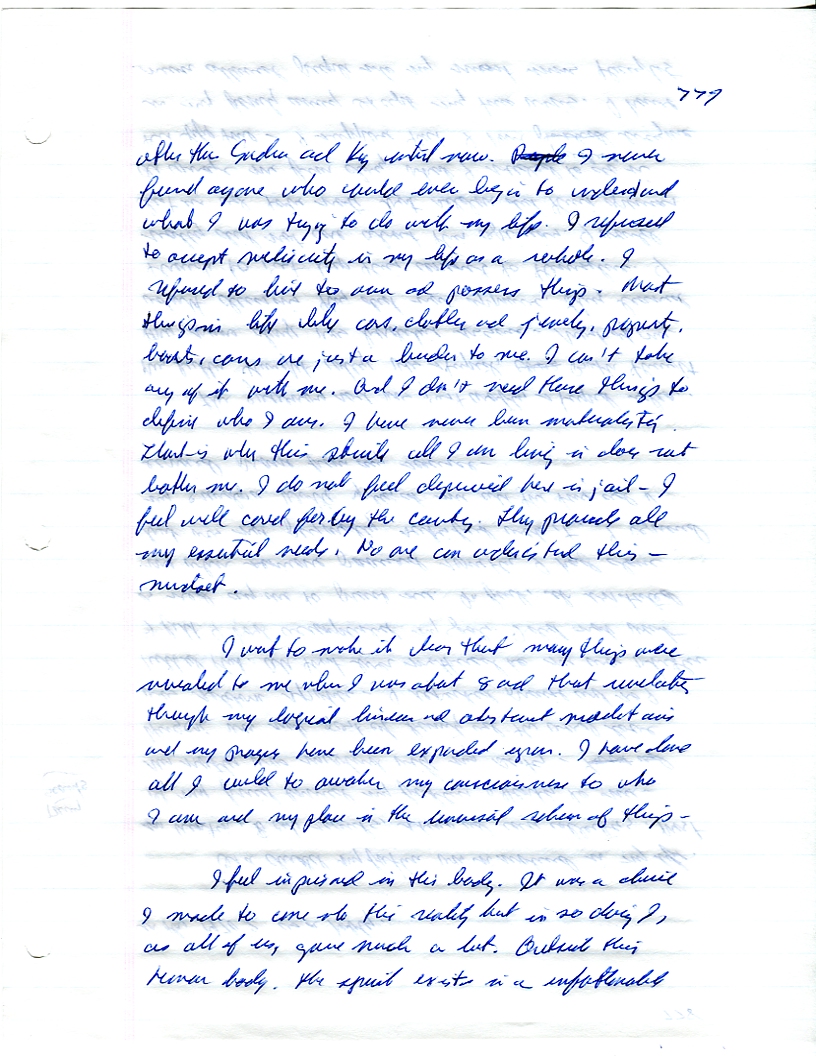 779
after the Gardner and Key until now. I never
found anyone who could even begin to understand
what I was trying to do with my life. I refused
to accept mediocrity in my life as a whole. I
refused to live to own and possess things. Most
things in life like cars, clothes and jewelry, property,
boats, cars are just a burden to me. I can't take
any of it with me. And I don't need these things to
define who I am. I have never been materialistic.
That is why this sterile cell I am living in does not
bother me. I do not feel deprived here in jail - I
feel well cared for by the county. They provide all
my essential needs. No one can understand this -
mindset.
I want to make it clear that many things were
revealed to me when I was about 8 and that revelation
through my logical linear and abstract meditations
and my prayers have been expanded upon. I have done
all I could to awaken my consciousness to who
I am and my place in the universal scheme of things -
I feel imprisoned in this body. It was a choice
I made to come into this reality but in so doing I,
as all of us, gave such a lot. Outside this
human body. the spirit exists in a